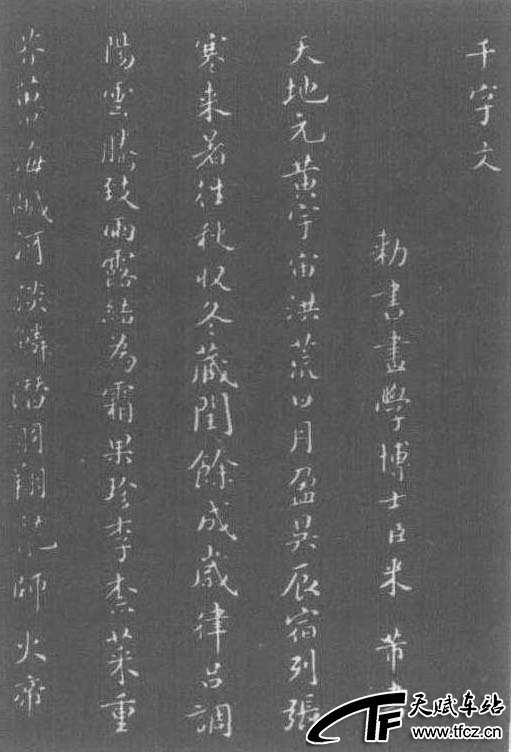 千字文
勅書畫學博士臣米芾
天地元黄宇宙洪荒日月盈昃辰宿列張
寒来暑往秋收冬藏閏餘成歲律呂調
陽雲騰致雨露結為霜果珍李柰菜重
芥薑海鹹河淡鱗潛羽翔龍師火帝
天赋车站
www.tfcz.cn